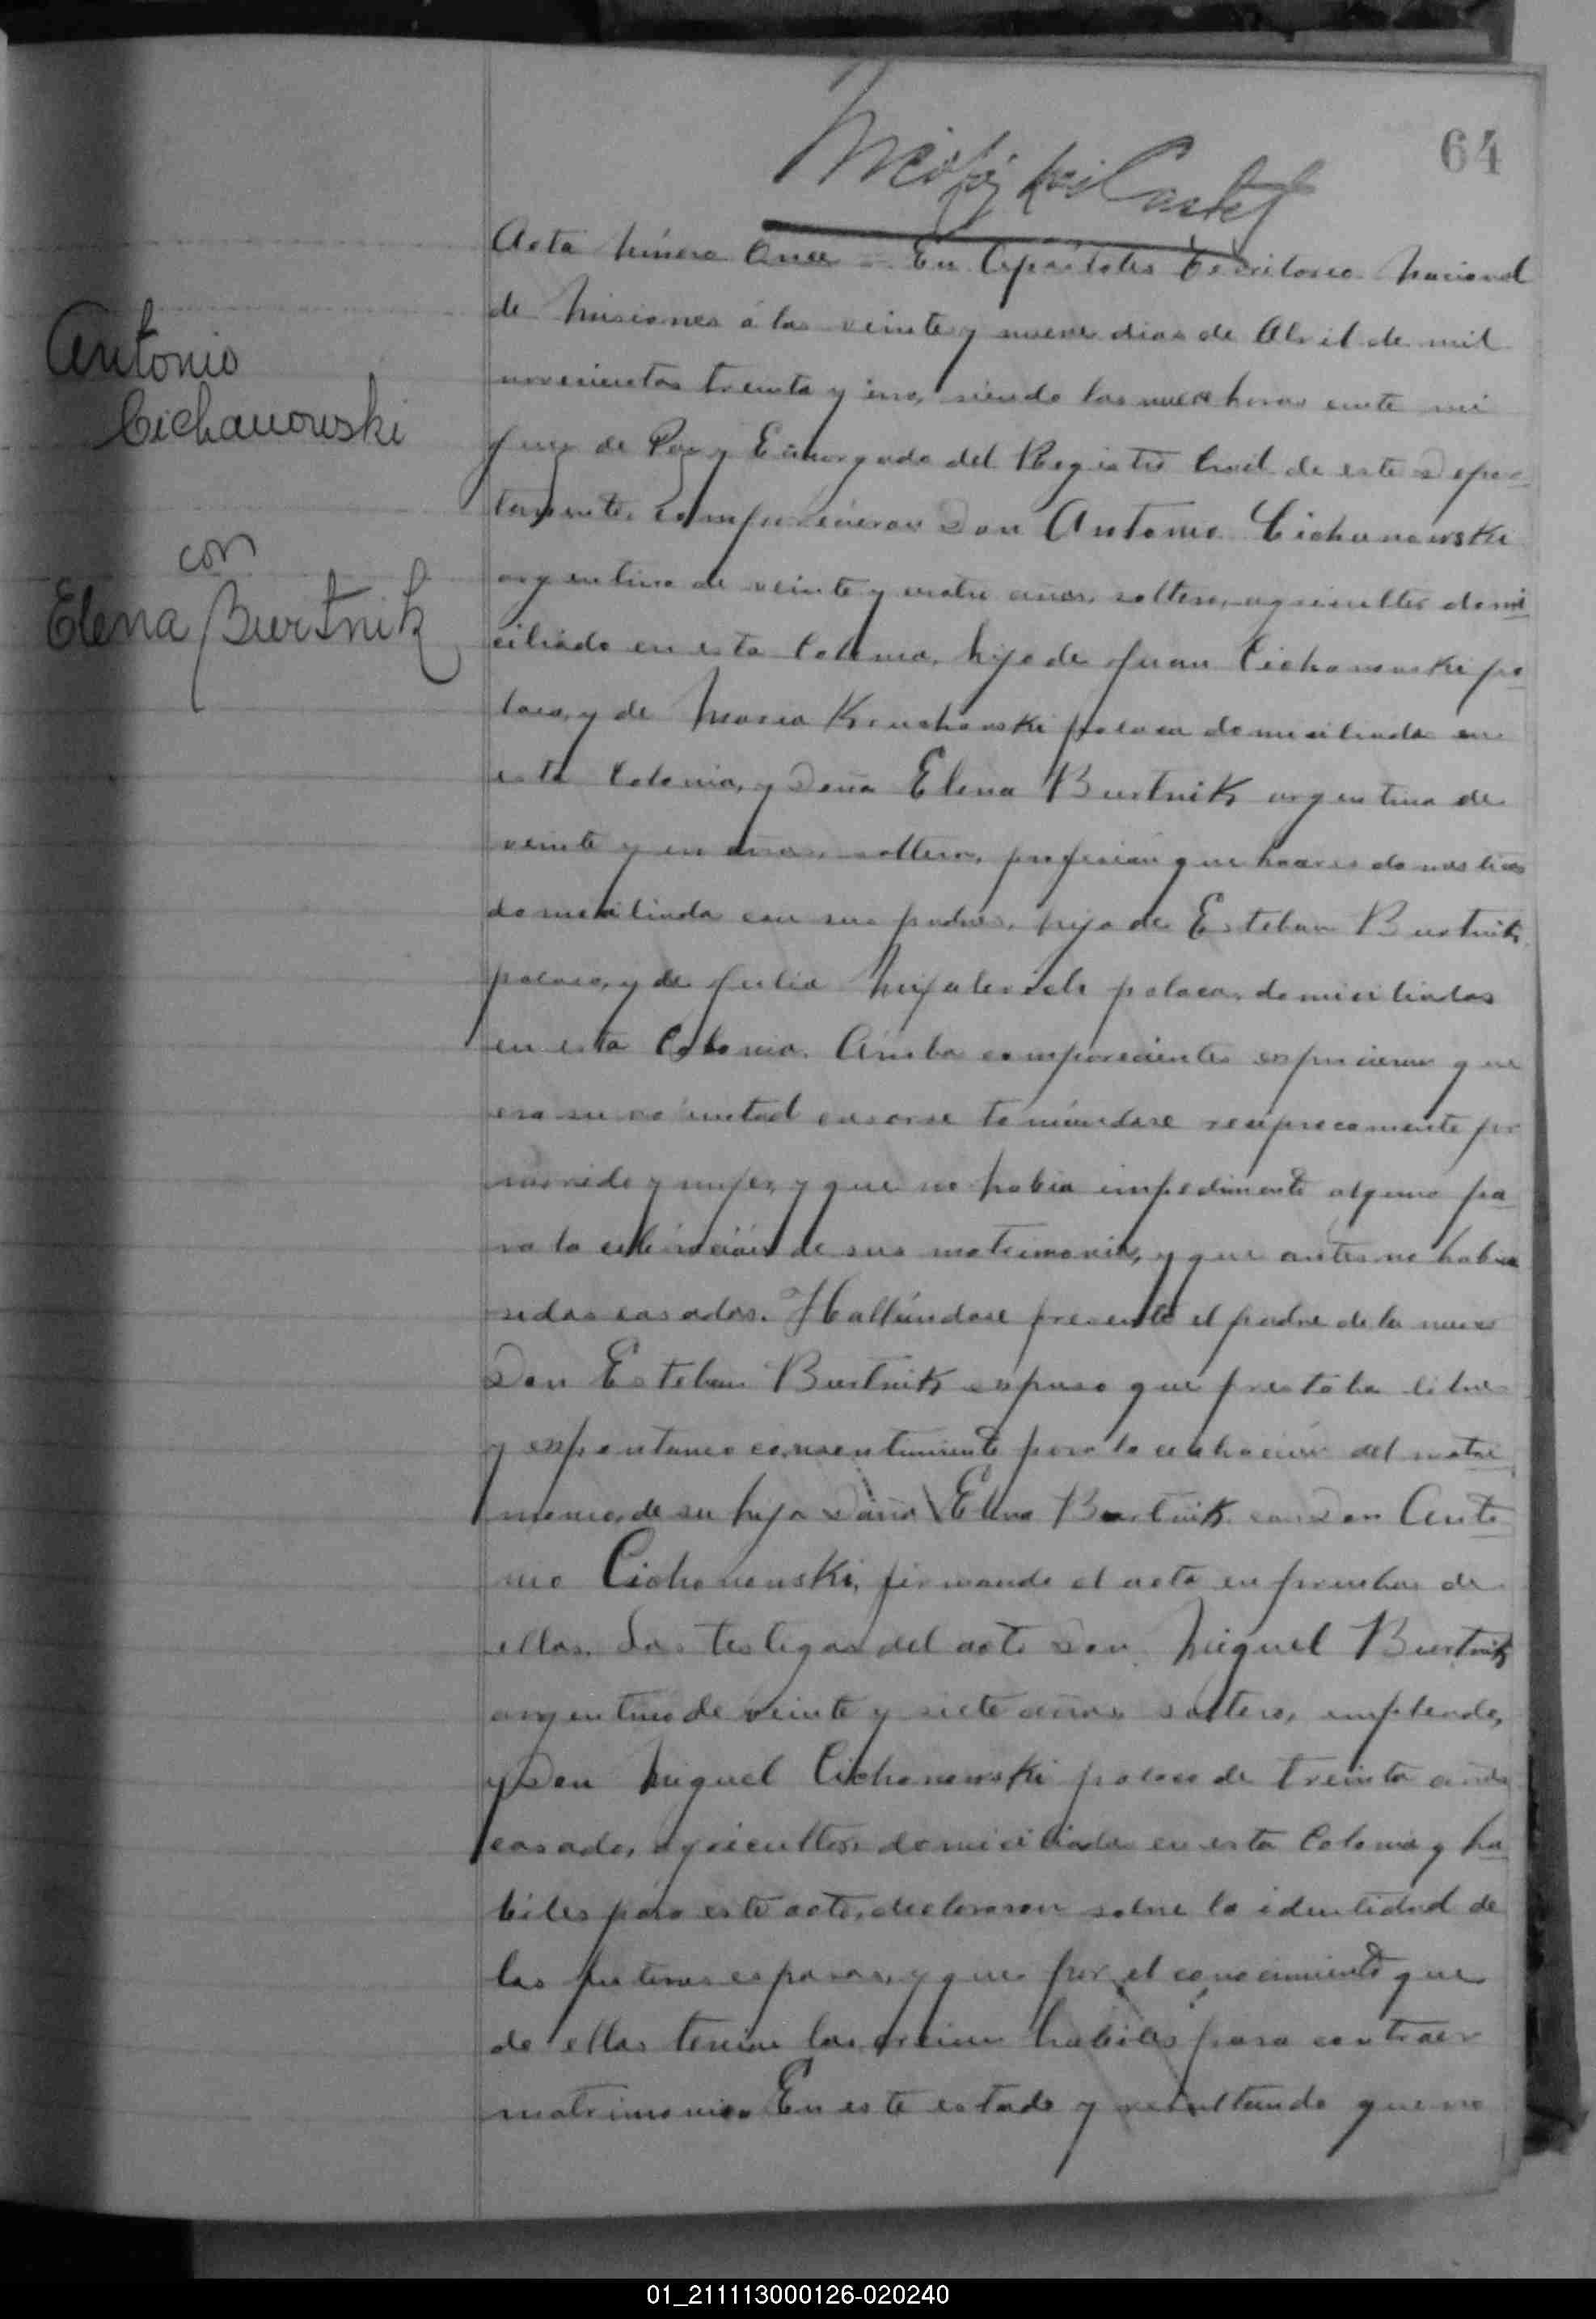 64
Antonio
Cichanowski
con
Elena Burtnik
Acta número Once = En Apóstoles Territorio Nacional
de Misiones á los veinte y nueve dias de Abril de mil
novecientos treinta y uno, siendo las nueve horas ante mi
Juez de Paz y Encargado del Registro Civil de este Depar-
tamento, comparecieron Don Antonio Cichanowski
argentino de veinte y cuatro años, soltero, agricultor domi
ciliado en esta Colonia, hijo de Juan Cichanowski po
laco, y de Maria polaca domiciliado en
esta Colonia, y Doña Elena Burtnik argentina de
veinte y un años, soltera, profesión que haceres domesticos
domiciliada con sus padres, hija de Esteban Burtnik
polaco, y de Julia polaca, domiciliados
en esta Colonia. Ambos comparecientes expusieron que
era su voluntad casarse tomándose reciprocamente por
marido y mujer, y que no habia impedimento alguno pa
ra la celebración de sus matrimonio, y que antes no habian
sidos casados. Hallándose presente el padre de la novia
Don Esteban Burtnik expuso que prestaba libre
y expontaneo consentimiento para la celebración del matri
monio, de su hija Doña Elena Burtnik con Don Anto
nio Cichanowski, firmando el acta en pruebas de
ellos. Los testigos del acto Don Miguel Burtnik
argentino de veinte y siete años soltero, empleado,
y Don Miguel Cichanowski polaco de treinta años
casado, agricultor, domiciliado en esta Colonia y ha
biles para este acto, declararon sobre la identidad de
los futuros esposos, y que por el conocimiento que
de ellos tenian los creian habiles para contraer
matrimonio. En este estado y resultando que no
01_211113000126-020240